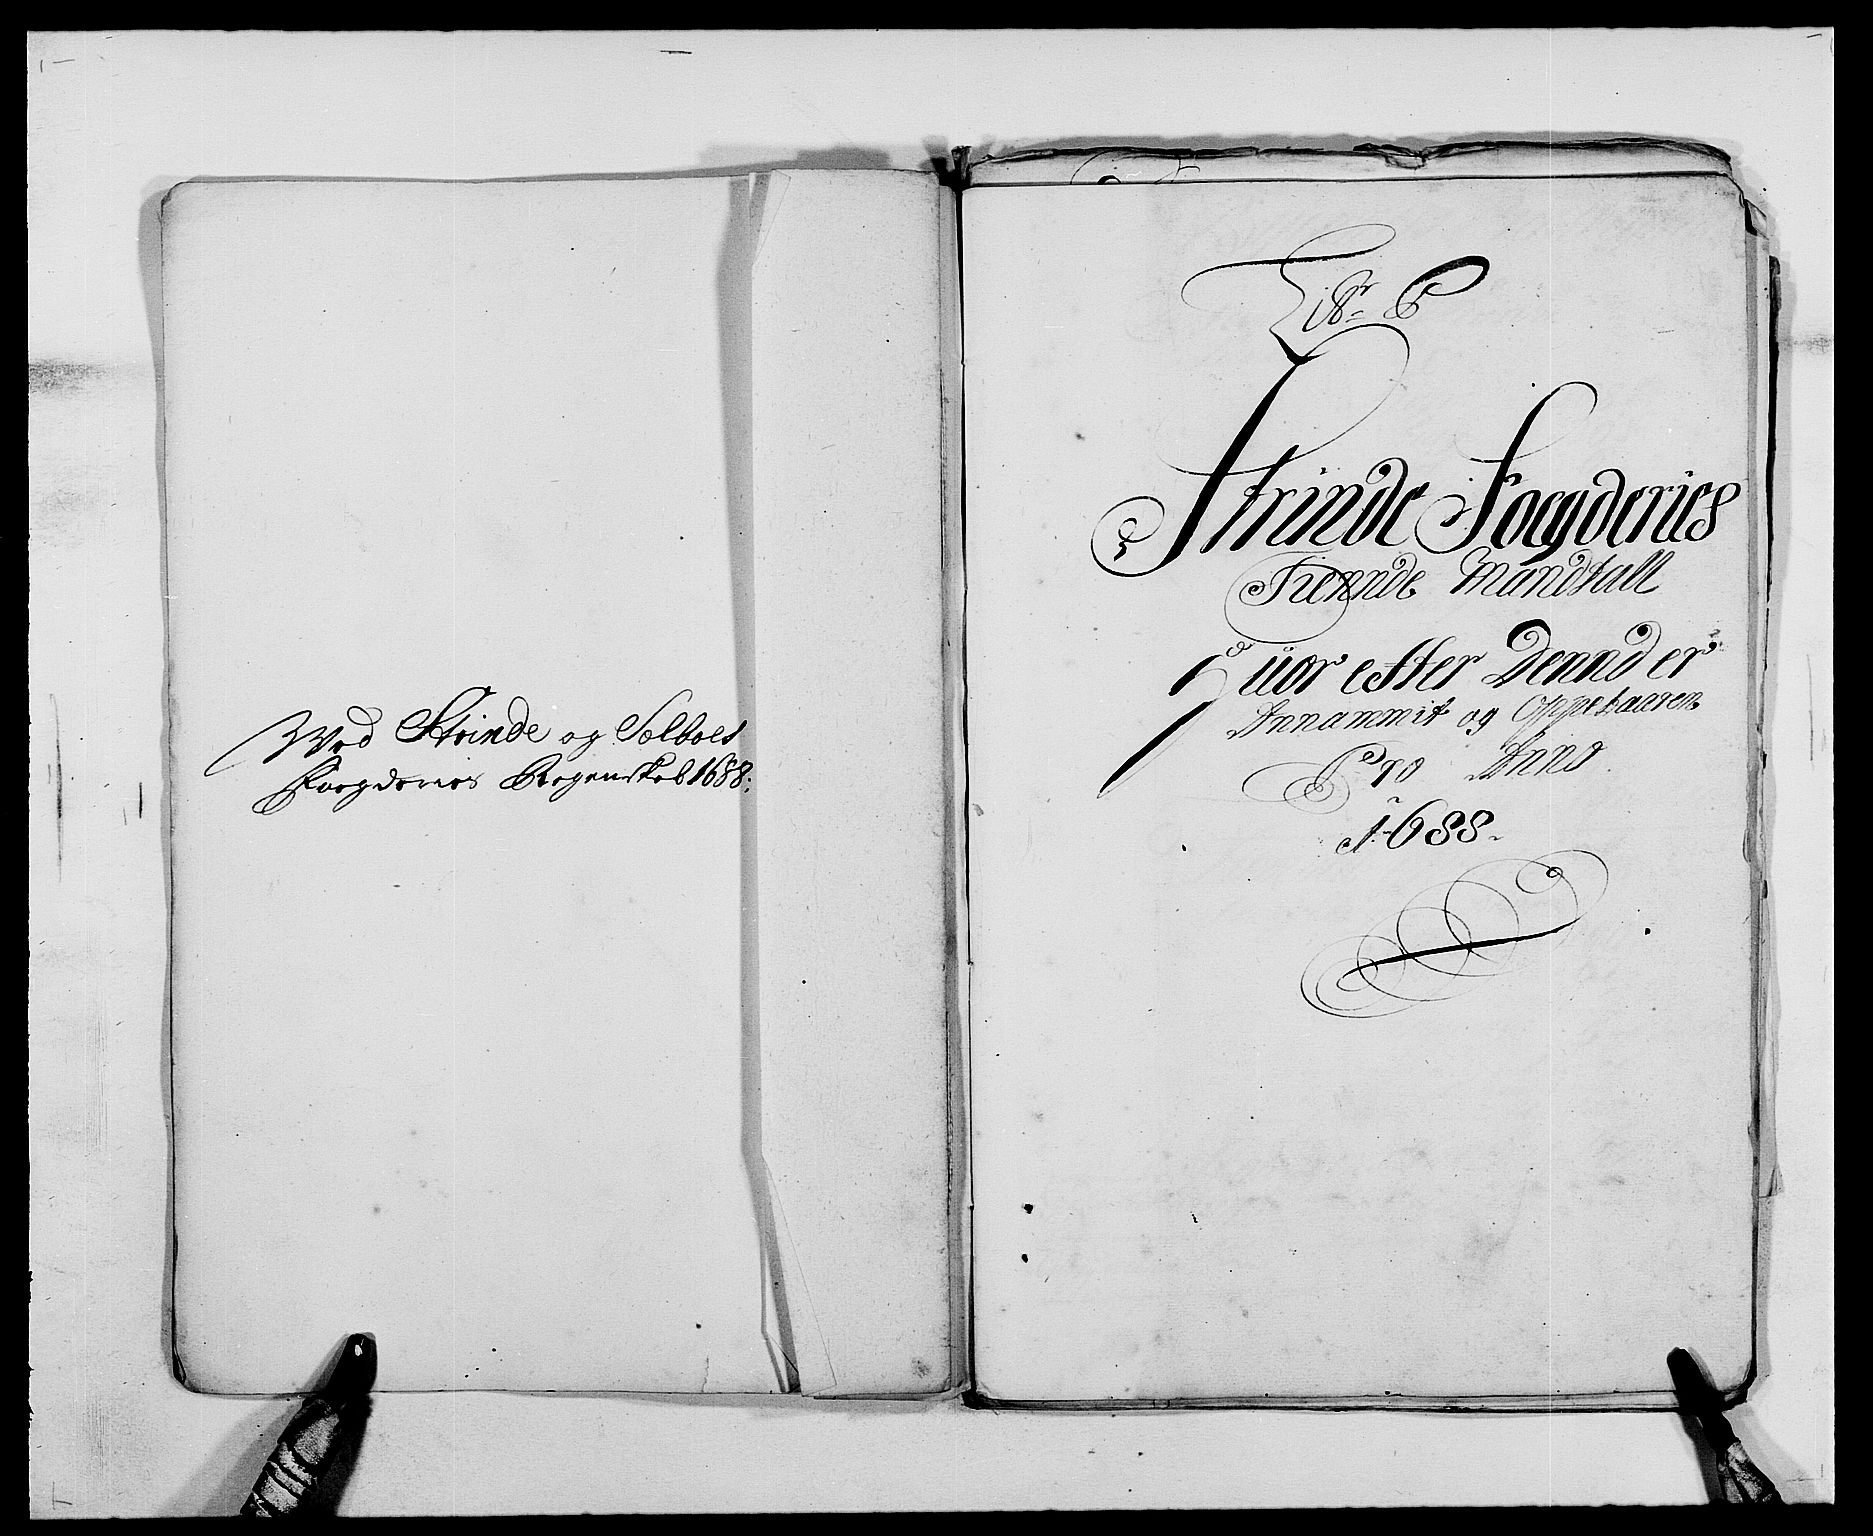 Wed Strinde og Selboes
Foegderies Regenskab 1688:
No 6
Strinde Foegderies
Tiennde Mandtall
Huor effter Dennd er
Annammit og Oppebaaren
Pro Anno
1688